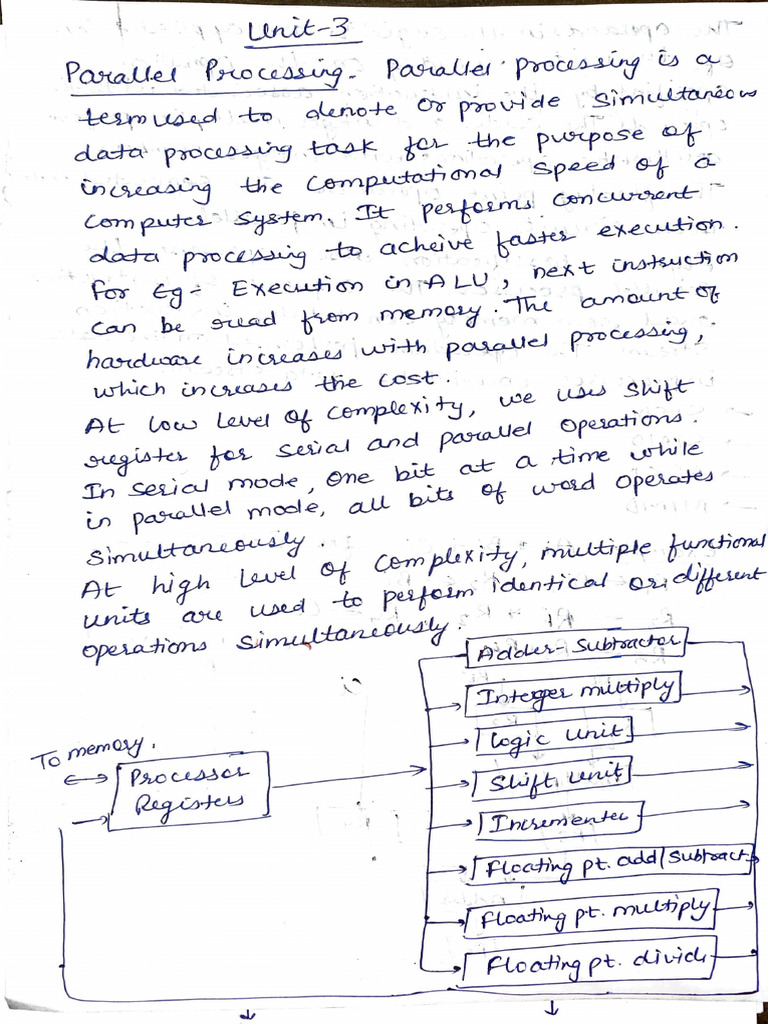 Unit-3
Parallel Processing- Parallel processing is a
term used to denote or provide simultaneous
data processing task for the purpose of
increasing the computational speed of a
computer system. It performs concurrent
data processing to acheive faster execution.
For Eg- Execution in ALU, next instruction
can be read from memory. The amount of
hardware increases with parallel processing,
which increases the cost.
At low level of complexity, we uses shift
register for serial and parallel operations.
In serial mode, one bit at a time while
in parallel mode, all bits of word operates
simultaneously.
At high level of complexity, multiple functional
units are used to perform identical or different
operations simultaneously.
Adder-Subtractor
Interger multiply
Logic unit
To memory.
Processor
Registers
Shift unit
Incrementer
Floating pt. add/subtract
Floating pt. multiply
Floating pt. divide